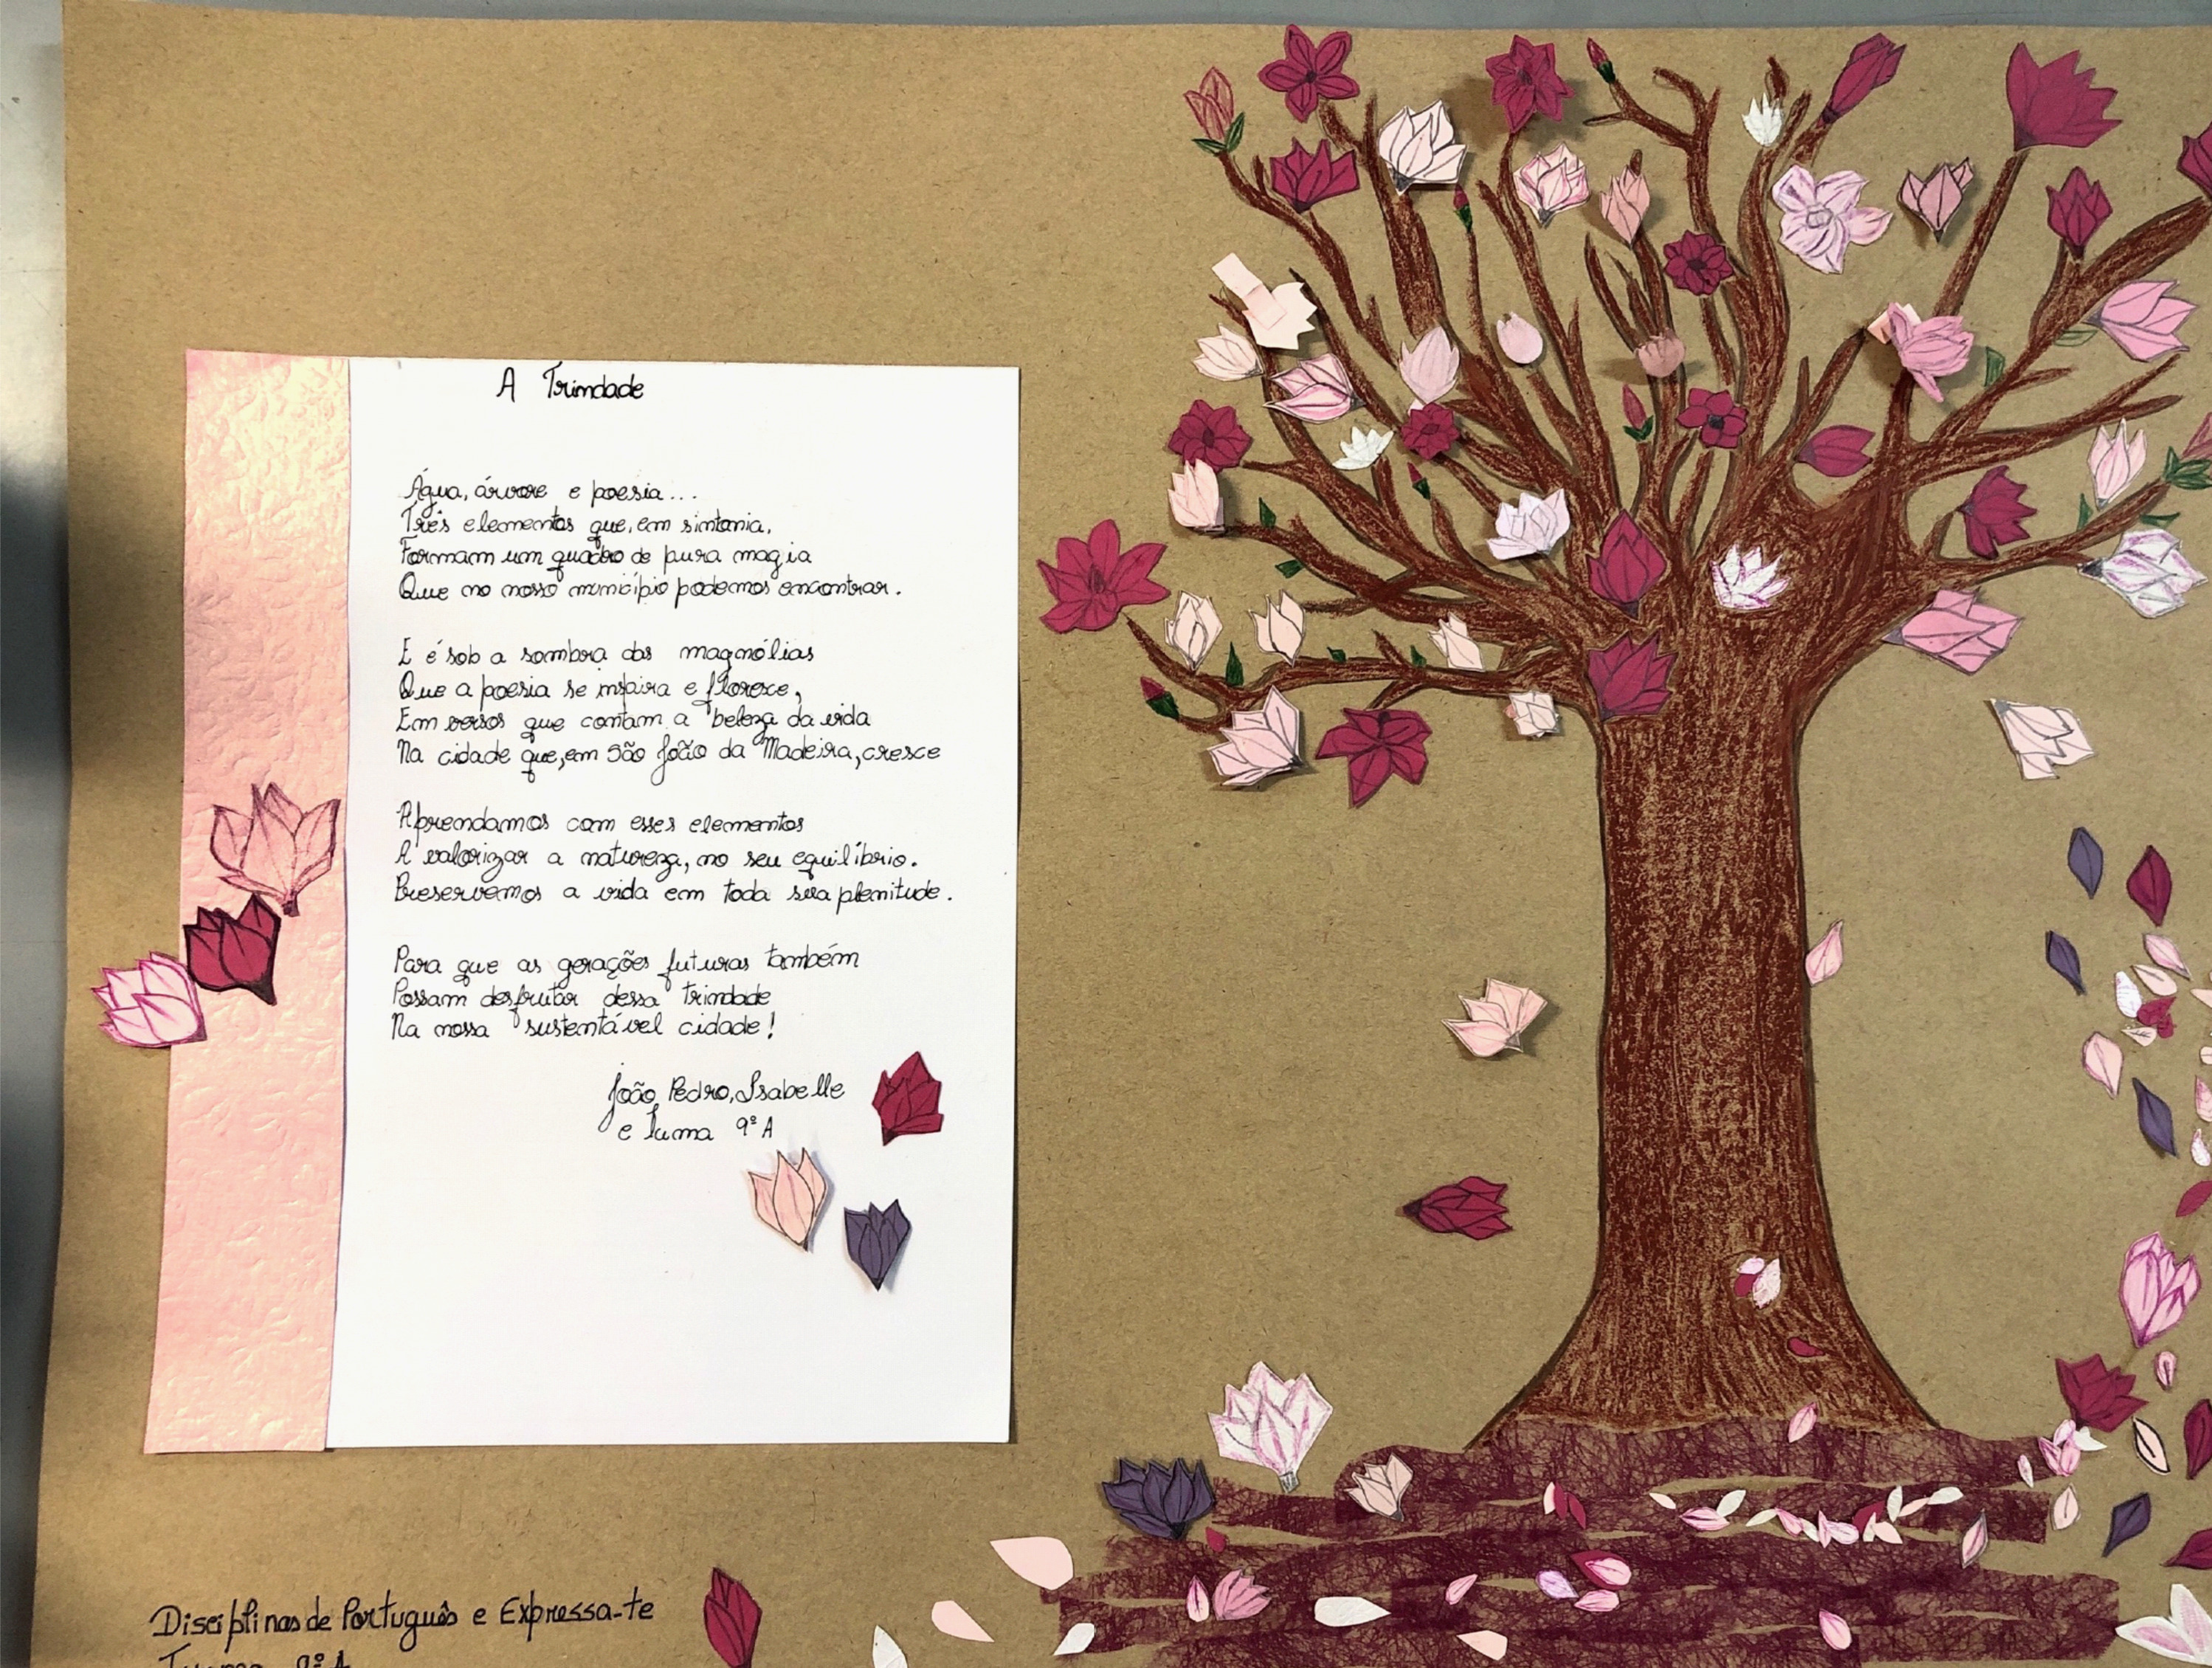 A Trindade
Água, árvore e poesia...
Três elementos que, em sintonia,
Formam um quadro de pura magia
Que no nosso município podemos encontrar.
E é sob a sombra das magnólias
Que a poesia se inspira e floresce,
Em versos que contam a beleza da vida
Na cidade que, em São João da Madeira, cresce
Aprendamos com esses elementos
A valorizar a natureza, no seu equilíbrio.
Preservemos a vida em toda sua plenitude.
Para que as gerações futuras também
Possam desfrutar dessa trindade
Na nossa sustentável cidade!
João Pedro, Isabelle
e Luma 9º A
Disciplinas de Português e Expressa-te
Turma 9º A